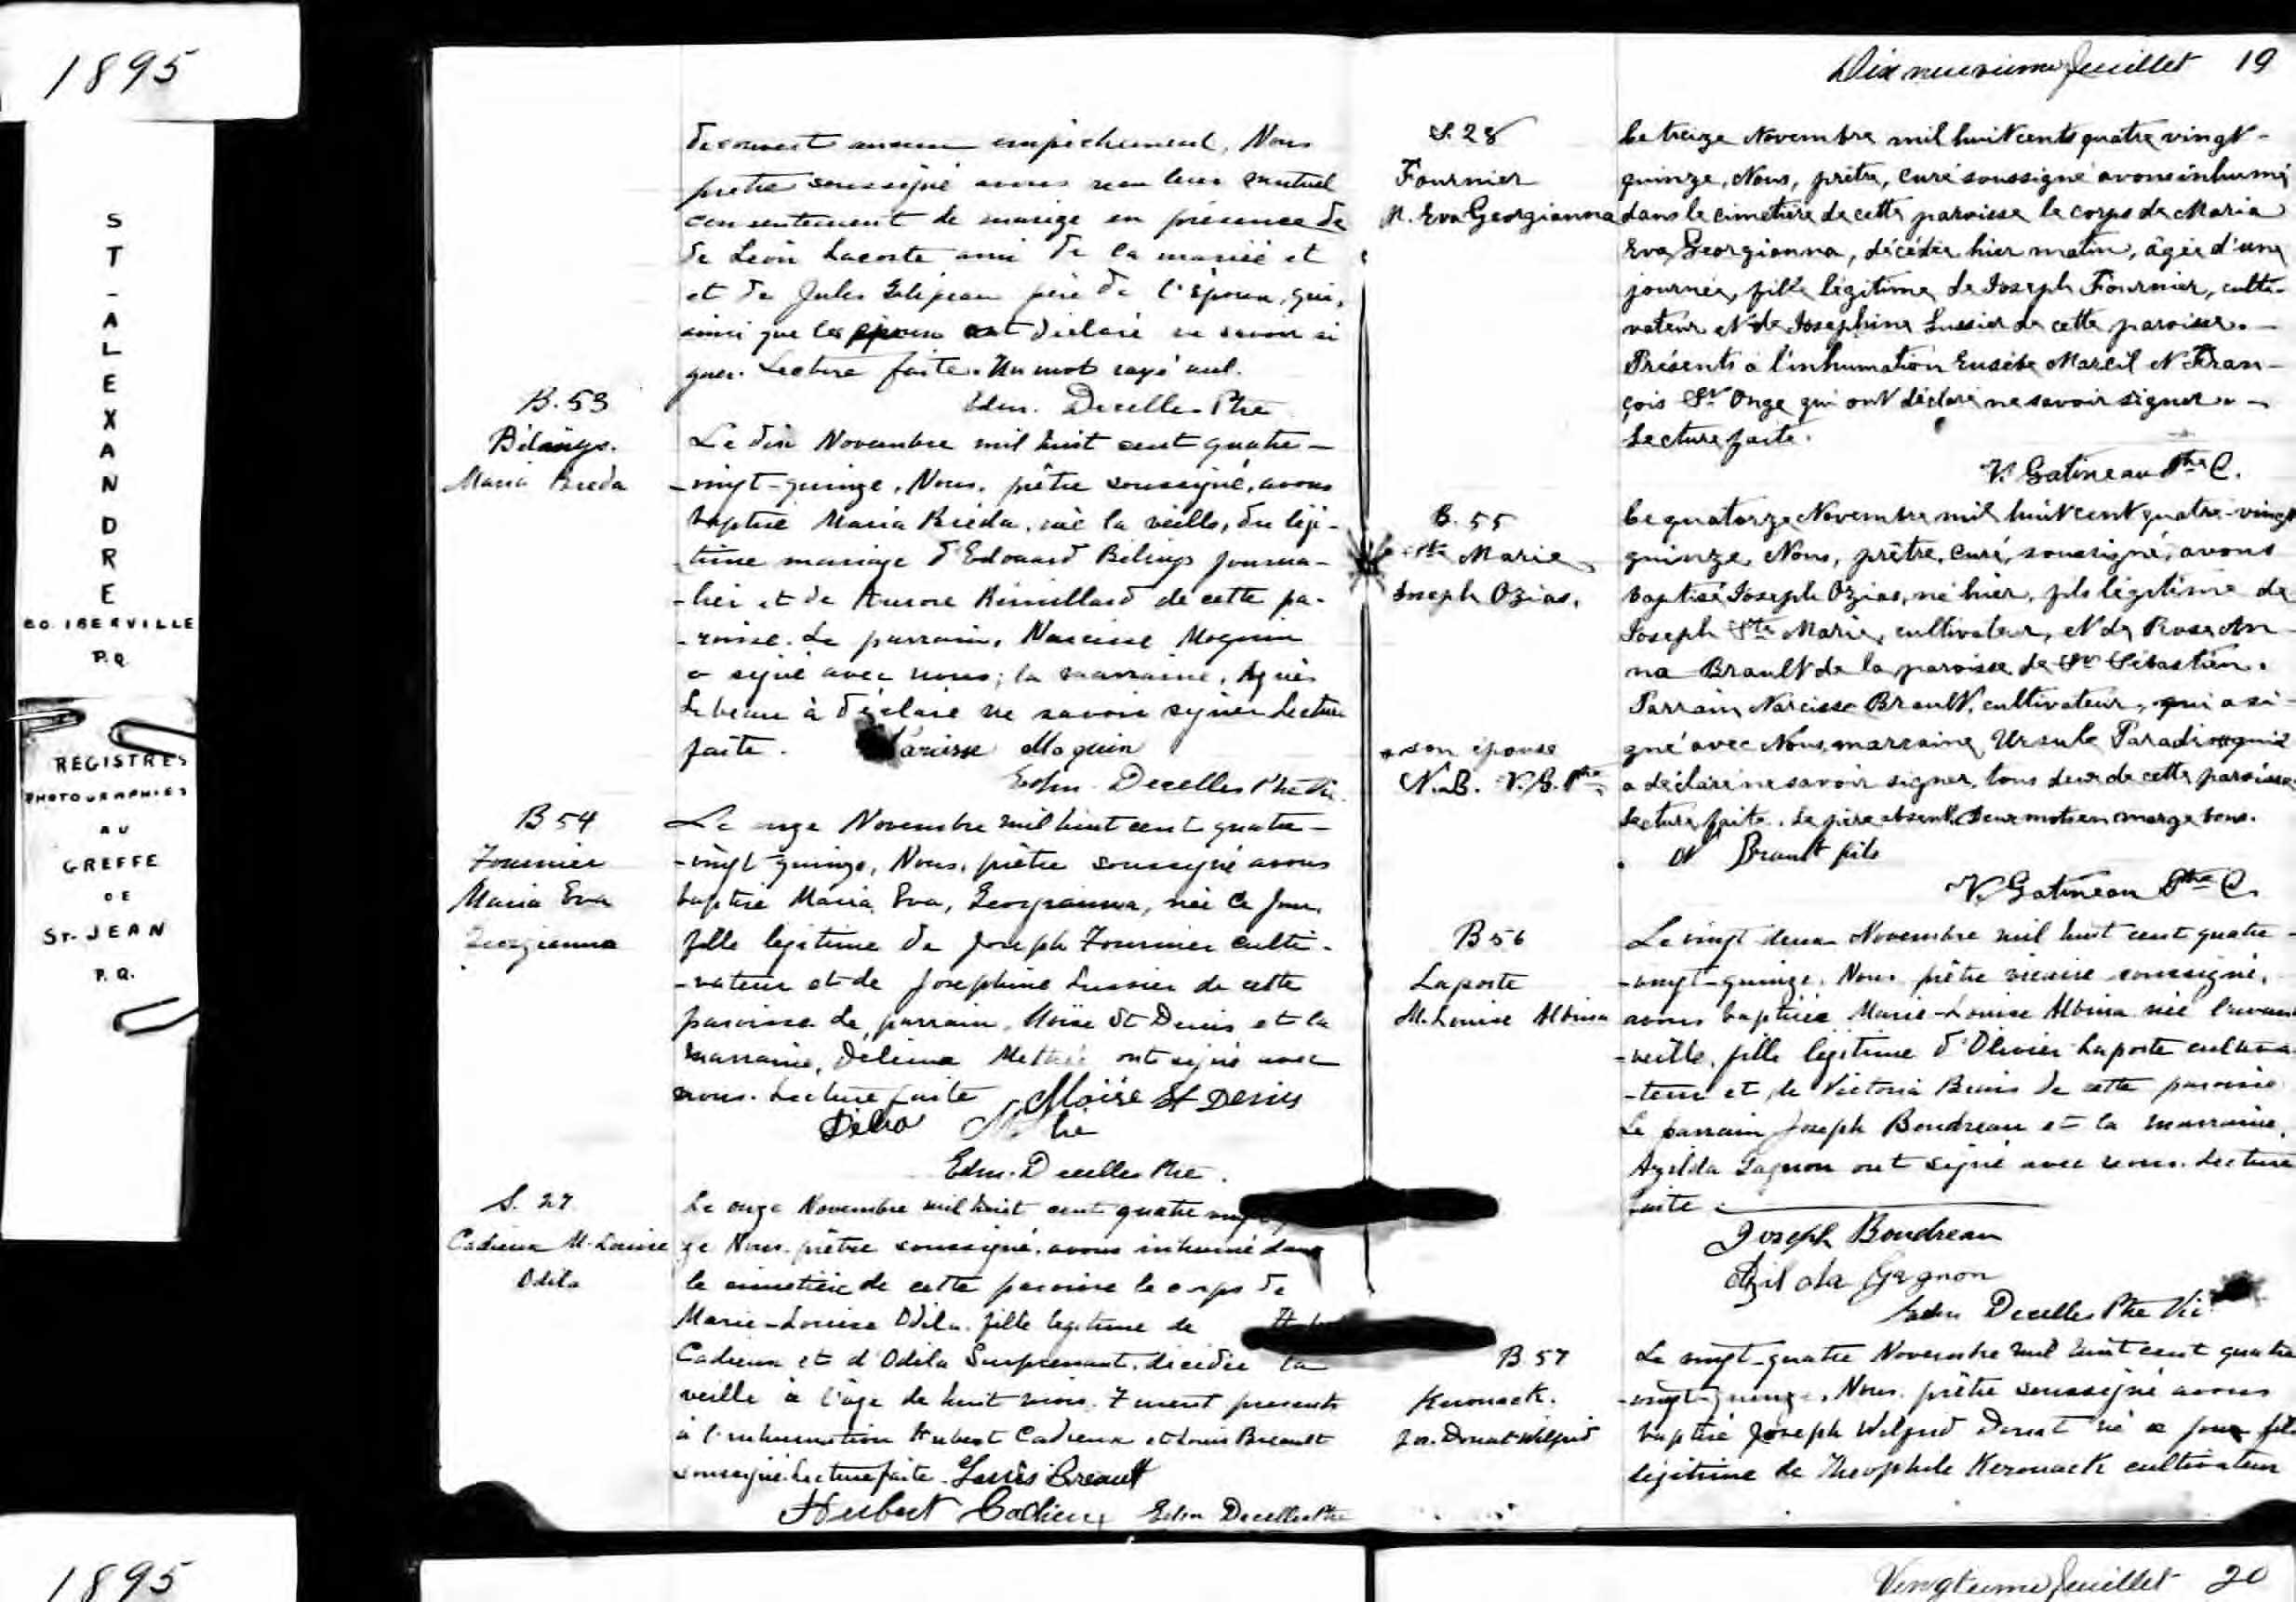 1895
ST-ALEXANDRE
CO. IBERVILLE
P.Q.
REGISTRES
PHOTOGRAPHIES
AU
GREFFE
DE
ST. JEAN
P.Q.
1895
decouvert aucun empêchement, Nous
prêtre soussigné avons reçu leur mutuel
consentement de mariage en présence de
de Léon Lacoste ami de la mariée et
et de Jules père de l'époux, qui,
ainsi que les époux ont déclaré ne savoir si
gner. Lecture faite. Un mot rayé nul.
Edm. Decelles Ptre
B. 53
Maria Breda
Le dix Novembre mil huit cent quatre-
-vingt-quinze, Nous, prêtre soussigné, avons
baptisé Maria Breda, née la veille, du légi-
-time mariage d'Edouard journa-
-lier et de Aurore Rémillard de cette pa-
-roisse. Le parrain, Narcisse Moquin
a signé avec nous; la marraine, Agnès
Lebeau à déclaré ne savoir signer Lecture
faite. Narcisse Moquin
Edm. Decelles Ptre Vic.
B 54
Fournier
Maria Eva
Georgianna
Le onze Novembre mil huit cent quatre-
-vingt quinze, Nous, prêtre soussigné avons
baptisé Maria, Eva, Georgianna, née ce jour,
fille légitime de Joseph Fournier culti-
-vateur et de Josephine Lussier de cette
paroisse Le parrain, Moïse St Denis et la
marraine, Délima ont signé avec
nous. Lecture faite Moïse St Denis
Edm. Decelles Ptre.
S. 27
Cadieux M-Louise
Odila
Le onze Novembre mil huit cent quatre
ze Nous prêtre soussigné, avons inhumé dans
le cimetière de cette paroisse le corps de
Marie-Louise Odila, fille légitime de
Cadieux et d'Odila Surprenant, décédée la
veille à l'âge de huit mois. Furent presents
à l'inhumation Hubert Cadieux et Louis Breault
soussigné Lecture faite. Louis Breault
Hubert Cadieux Edm Decelles Ptre
Dix neuvième feuillet 19
S. 28
Fournier
M. Eva Georgianna
Le treize Novembre mil huit cents quatre vingt-
quinze, Nous, prêtre, curé soussigné avons inhumé
dans le cimetière de cette paroisse le corps de Maria
Eva Georgianna, décédée hier matin, âgée d'une
journée, fille légitime de Joseph Fournier, culti-
vateur et de Josephine Lussier de cette paroisse.-
Présents à l'inhumation Eusèbe Marcil et Fran-
çois St Onge qui ont déclaré ne savoir signer.-
Lecture faite.
V. Gatineau Ptre C.
B. 55
Ste Marie
Joseph Ozias.
Le quatorze Novembre mil huit cent quatre-vingt
quinze, Nous, prêtre, curé, soussigné, avons
baptisé Joseph Ozias, né hier, fils légitime de
Joseph Ste Marie, cultivateur, et de Rose An-
na Brault de la paroisse de St Sébastien.
Parrain Narcisse Brault, cultivateur, qui a si-
gné avec Nous, marraine Ursule Paradis qui
a déclaré ne savoir signer, tous deux de cette paroisse
Lecture faite. Le père absent. Deux mots en marge bons.
son épouse
N.B. V.G. Ptre
N Brault fils
V. Gatineau Ptre C.
B 56
Laporte
M. Louise Albina
Le vingt deux Novembre mil huit cent quatre-
-vingt-quinze, Nous prêtre vicaire soussigné,
avons baptisée Marie-Louise Albina née l'avant
-veille, fille légitime d'Olivier Laporte cultiva-
-teur et de Victoria de cette paroisse
Le parrain Joseph Boudreau et la marraine,
Azilda Gagnon ont signé avec nous. Lecture
faite.
Joseph Boudreau
Azilda Gagnon
Edm Decelles Ptre Vic
B 57
Kerouack.
Jos. Donat Wilfrid
Le vingt-quatre Novembre mil huit cent quatre
-vingt-quinze, Nous prêtre soussigné avons
baptisé Joseph Wilfrid Donat né ce jour fils
légitime de Theophile Kerouack cultivateur
Vingtième feuillet 20